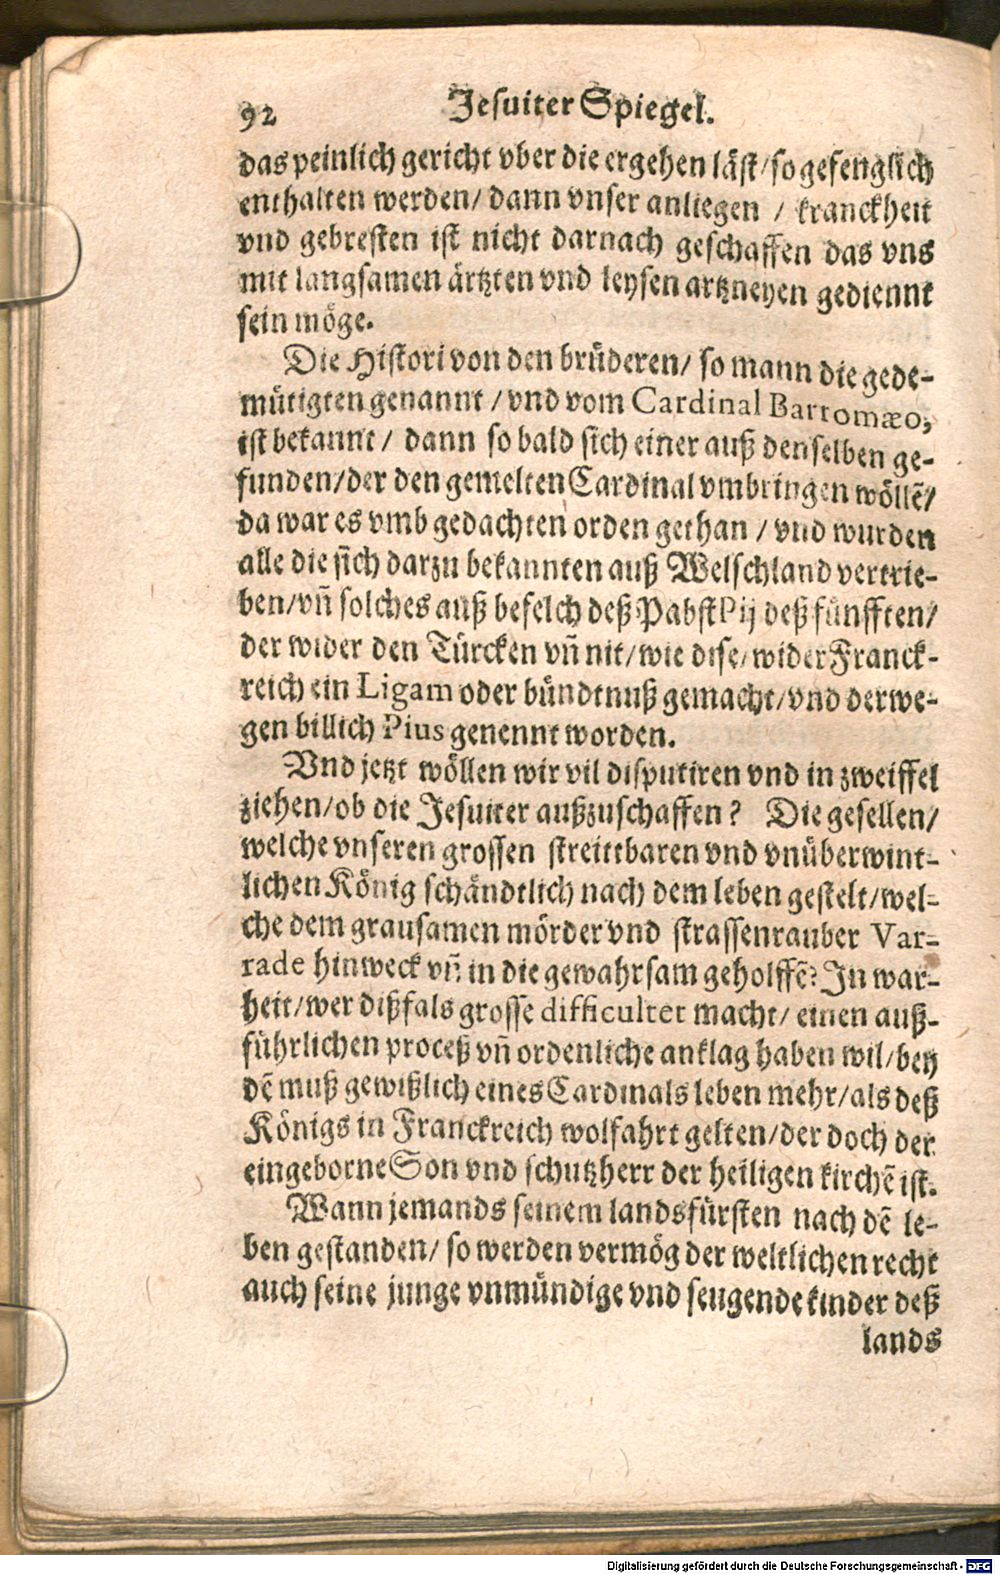 92 Jesuiter Spiegel.
das peinlich gericht vber die ergehen läst/so gefenglich
enthalten werden/ dann vnser anliegen / kranckheit
vnd gebresten ist nicht darnach geschaffen das vns
mit langsamen ärtzten vnd leysen artzneyen gediennt
sein möge.
Die Histori von den brüderen/ so mann die gede-
mütigten genannt /vnd vom Cardinal Barromæo,
ist bekannt/ dann so bald sich einer auß denselben ge-
funden/der den gemelten Cardinal vmbringen wöllē/
da war es vmb gedachten orden gethan / vnd wurden
alle die sich darzu bekannten auß Welschland vertrie-
ben/vñ solches auß befelch deß Pabst Pij deß fünfften/
der wider den Türcken vñ nit/wie dise/wider Franck-
reich ein Ligam oder bündtnuß gemacht/vnd derwe-
gen billich Pius genennt worden.
Vnd jetzt wöllen wir vil disputiren vnd in zweiffel
ziehen/ob die Jesuiter außzuschaffen? Die gesellen/
welche vnseren grossen streittbaren vnd vnüberwint-
lichen König schändtlich nach dem leben gestelt/wel-
che dem grausamen mörder vnd strassenrauber Var-
rade hinweck vñ in die gewahrsam geholffē? In war-
heit/wer dißfals grosse difficultet macht/ einen auß-
führlichen proceß vñ ordenliche anklag haben wil/bey
dē muß gewißlich eines Cardinals leben mehr/als deß
Königs in Franckreich wolfahrt gelten/der doch der
eingeborne Son vnd schutzherr der heiligen kirchē ist.
Wann jemands seinem landsfürsten nach dē le-
ben gestanden/ so werden vermög der weltlichen recht
auch seine junge vnmündige vnd seugende kinder deß
lands
Digitalisierung gefördert durch die Deutsche Forschungsgemeinschaft - DFG